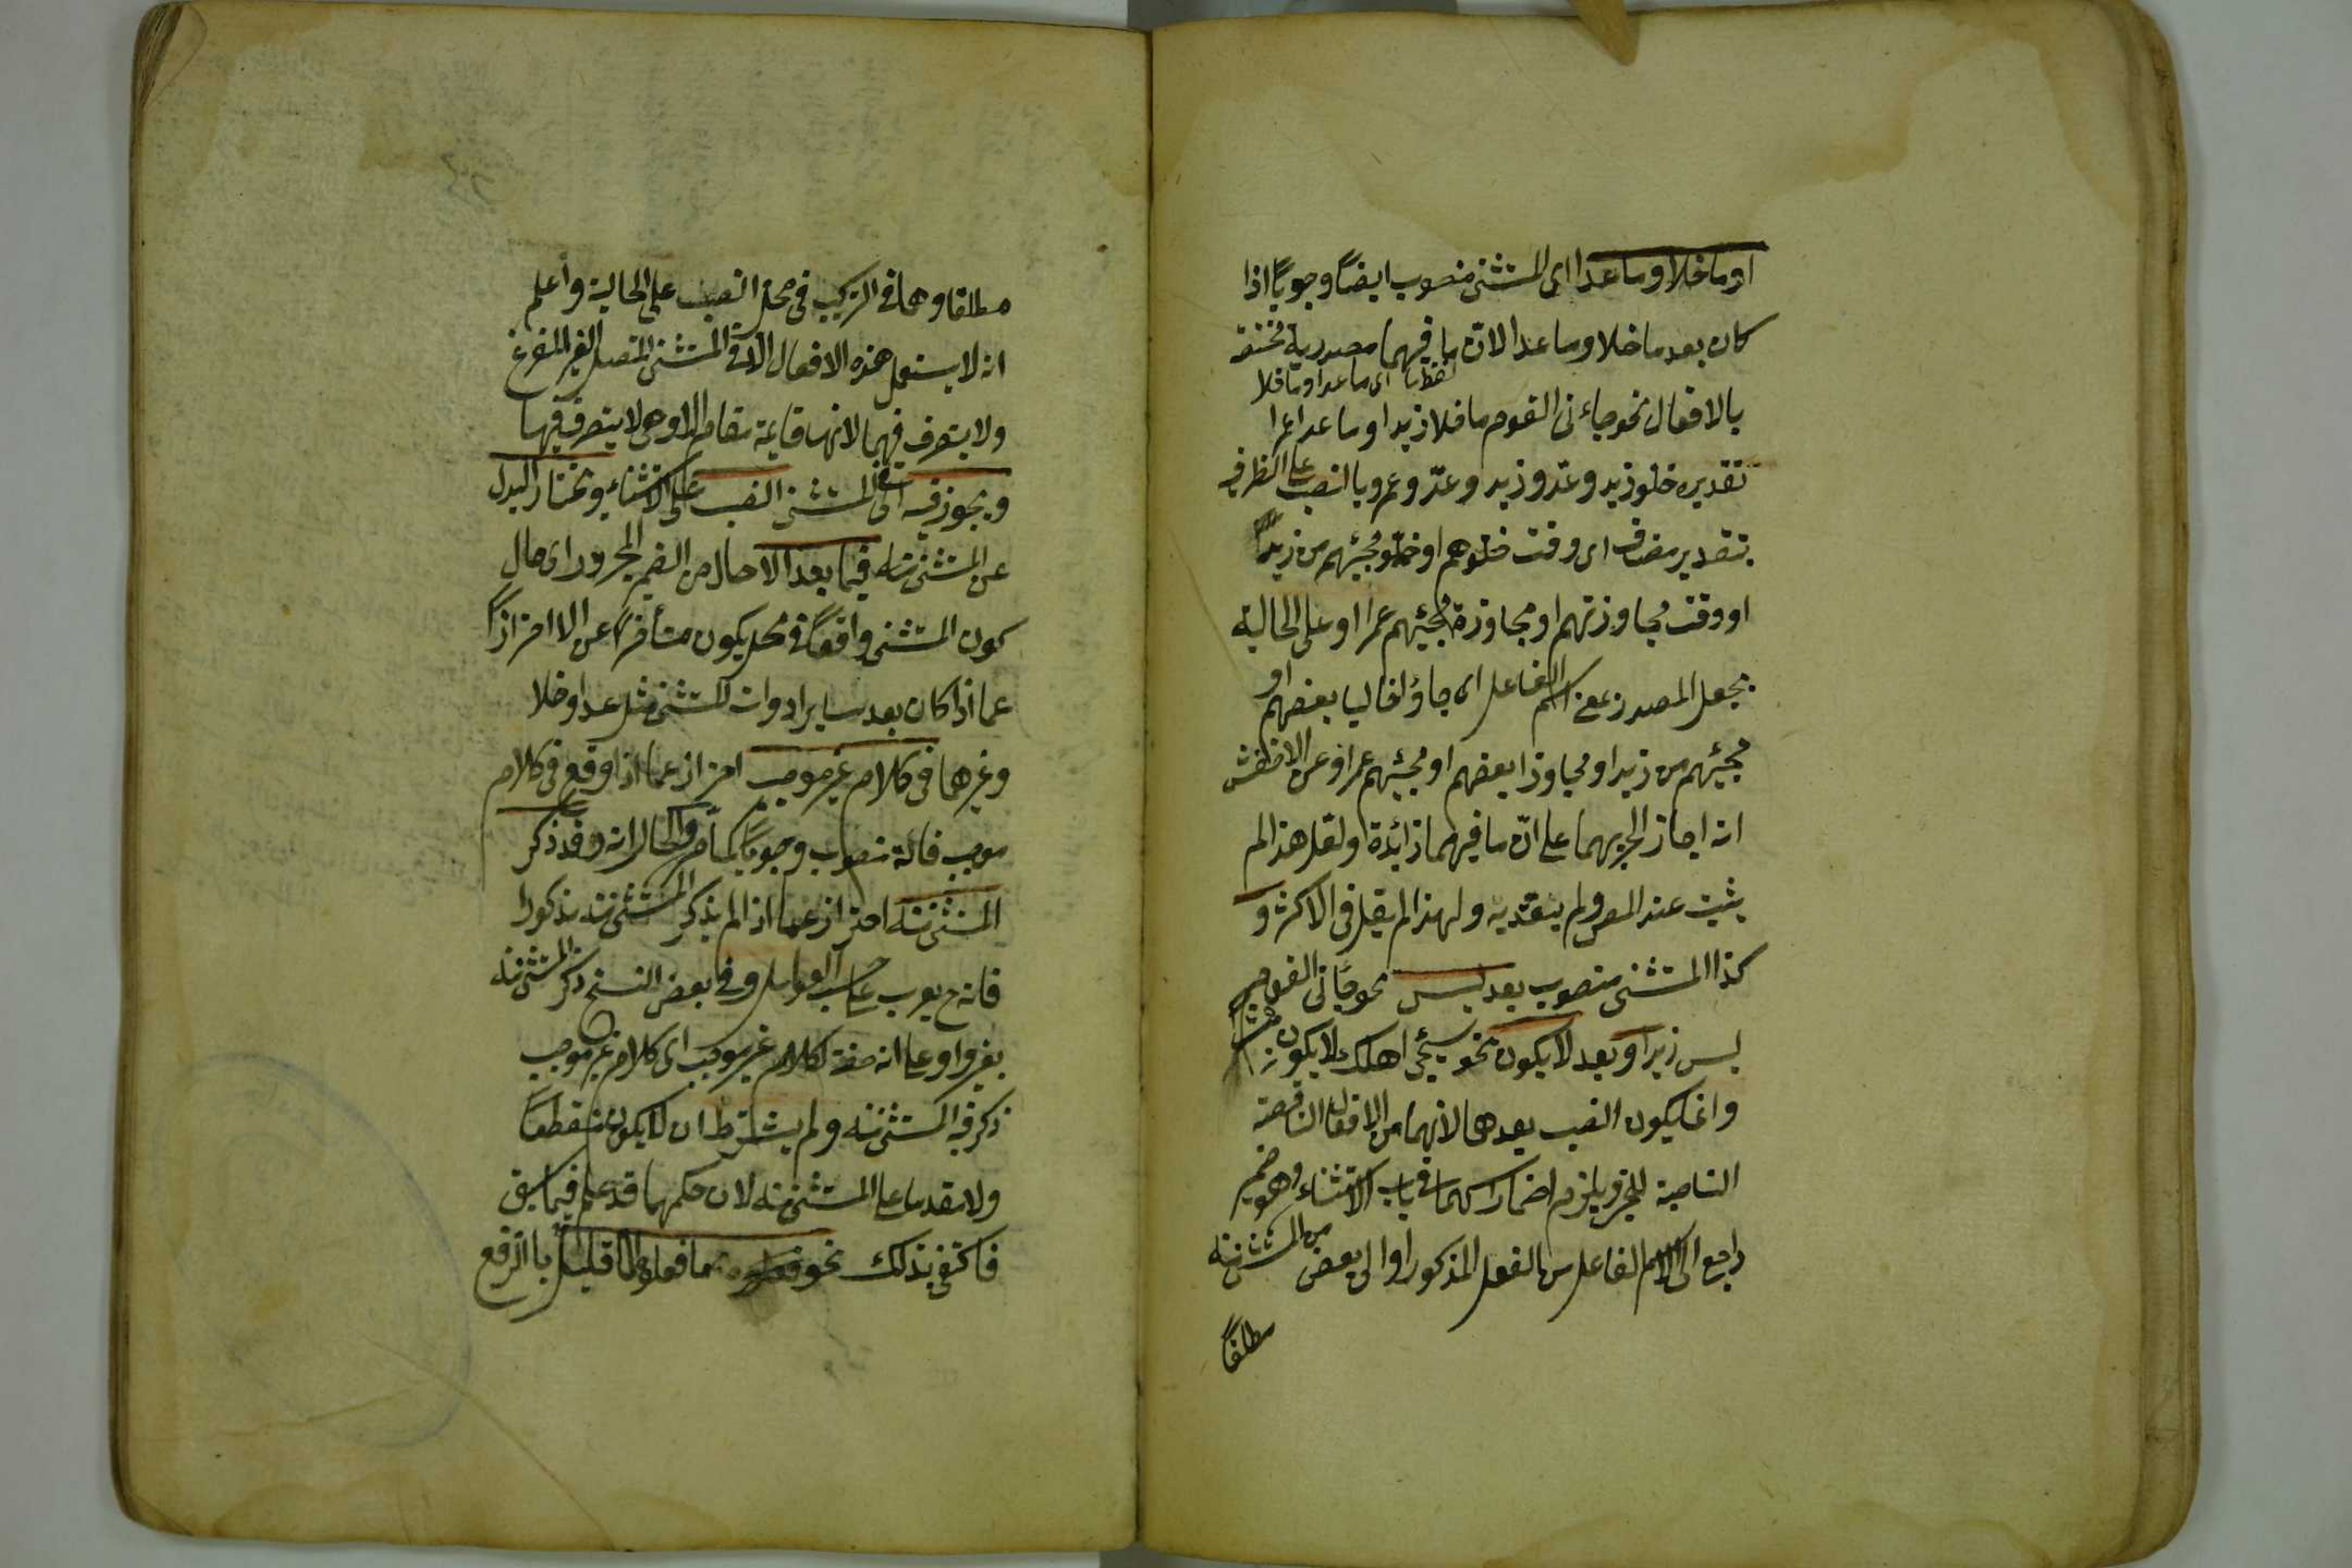 او ما خلا وما عدا اى المستثنى منصوب ايضاً وجوباً اذا
كان بعد ما خلا وما عدا لانّ ما فيهما مصدرية مختصّة
لفظ ما اى ما عدا وما خلا
بالافعال نحو جاءنى القوم ما خلا زيدا او ما عدا عمرا
تقديره خلو زيد وعدو زيد وعدّو عمرو بالنصب على الظرفية
بتقدير مضاف اى وقت خلوهم او خلو مجيئهم من زيد
او وقت مجاوزتهم او مجاوزة مجيئهم عمرا او على الحالية
بجعل المصدر بمعنى اسم الفاعل اى جاؤا خاليا بعضهم او
مجيئهم من زيد او مجاوزا بعضهم او مجيئهم عمرا وعن الاخفش
انه اجاز الجر بهما على انّ ما فيهما زائدة ولعل هذا لم
يثبت عند المص ولم يعتد به ولهذا لم يقل فى الاكثر و
كذا المستثنى منصوب بعد ليس نحو جاءنى القوم
ليس زيدا وبعد لا يكون نحو سيجئ اهلك لا يكون
وانما يكون النصب بعدهما لانهما من الافعال الناقصة
الناصبة للخبر ويلزم اضمار اسمهما فى باب الاستثناء وهو ضمير
راجع الى اسم الفاعل من الفعل المذكور او الى بعض من المستثنى منه
مطلقاً
مطلقا وهما فى التركيب فى محل النصب على الحالية واعلم
انه لا يستعمل هذه الافعال الا فى المستثنى المتصل الغير المفرغ
ولا يتصرف فيها لانها قائمة مقام الا وهى لا يتصرف فيها
ويجوز فيه اى فى المستثنى النصب على الاستثناء ويختار البدل
عن المستثنى منه فيما بعد الا حال من الضمير المجرور اى حال
كون المستثنى واقعاً فى محل يكون متأخراً عن الا احترازاً
عما اذا كان بعد ساير ادوات المستثنى مثل عدا وخلا
وغيرهما فى كلام غير موجب احتراز عما اذا وقع فى كلام
موجب فانه منصوب وجوباً كما مر والحال انه وقد ذكر
المستثنى منه احتراز عما اذا لم يذكر المستثنى منه مذكورا
فانه ح يعرب على حسب العوامل وفى بعض النسخ ذكر المستثنى منه
بغير واو على انه صفة لكلام غير موجب اى كلام غير موجب
ذكر فيه المستثنى منه ولم يشترط ان لا يكون منقطعاً
ولا مقدما على المستثنى منه لان حكمهما قد علم فيما سبق
فاكتفى بذلك نحو ما فعلوه الا قليل بالرفع